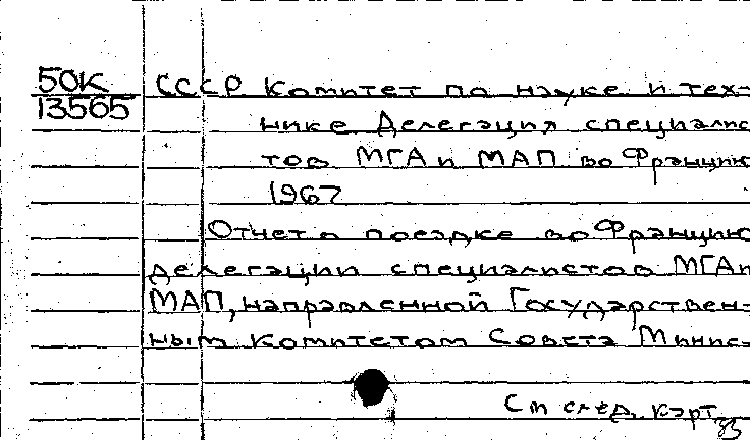 50К
13565
СССР Комитет по науке и тех-
нике Делегация специалис
тов МГА и МАП во Францию
1967
Отчет о поездке во Францию
делегации специалистов МГА и
МАП, направленной Государствен-
ным Комитетом Совета Минис-
См след. карт.